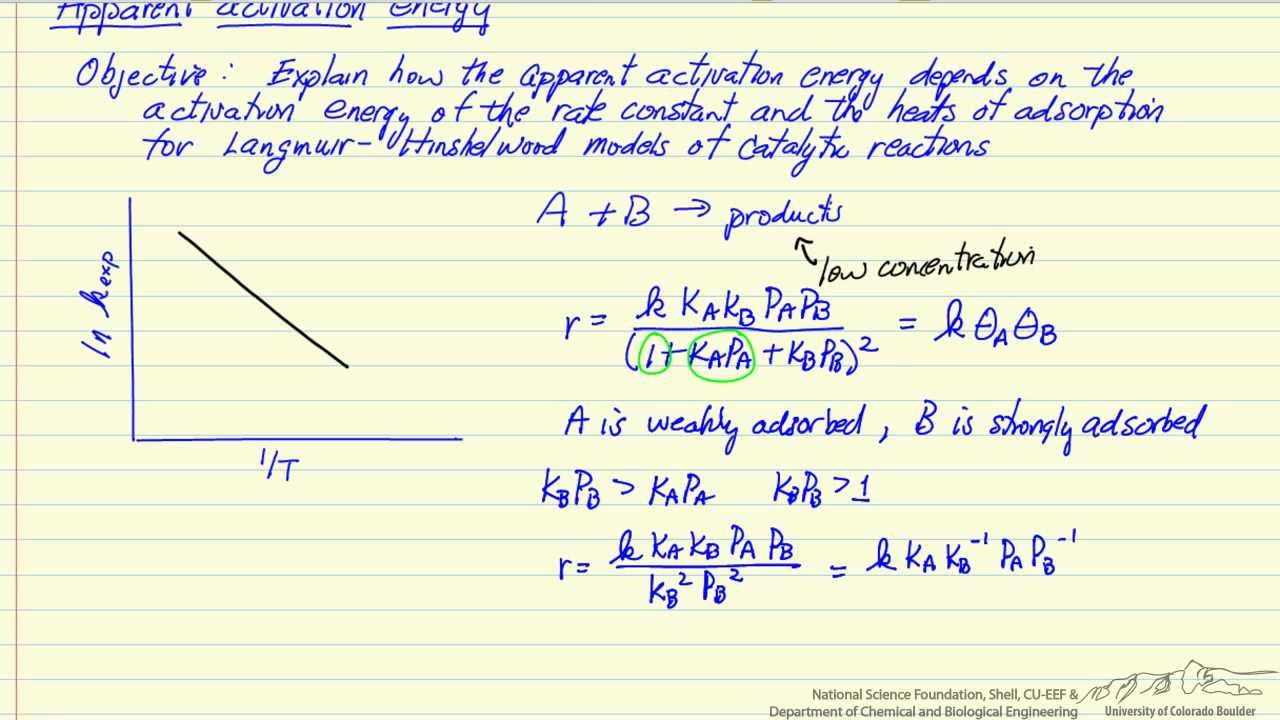 Apparent activation energy
Objective: Explain how the apparent activation energy depends on the
activation energy of the rate constant and the heats of adsorption
for Langmuir-Hinshelwood models of catalytic reactions
A + B → products
low concentration
ln k exp
1/T
r = k K_A K_B P_A P_B / (1 + K_A P_A + K_B P_B)² = k θ_A θ_B
A is weakly adsorbed, B is strongly adsorbed
K_B P_B > K_A P_A K_B P_B > 1
r = k K_A K_B P_A P_B / K_B² P_B² = k K_A K_B⁻¹ P_A P_B⁻¹
National Science Foundation, Shell, CU-EEF &
Department of Chemical and Biological Engineering
University of Colorado Boulder